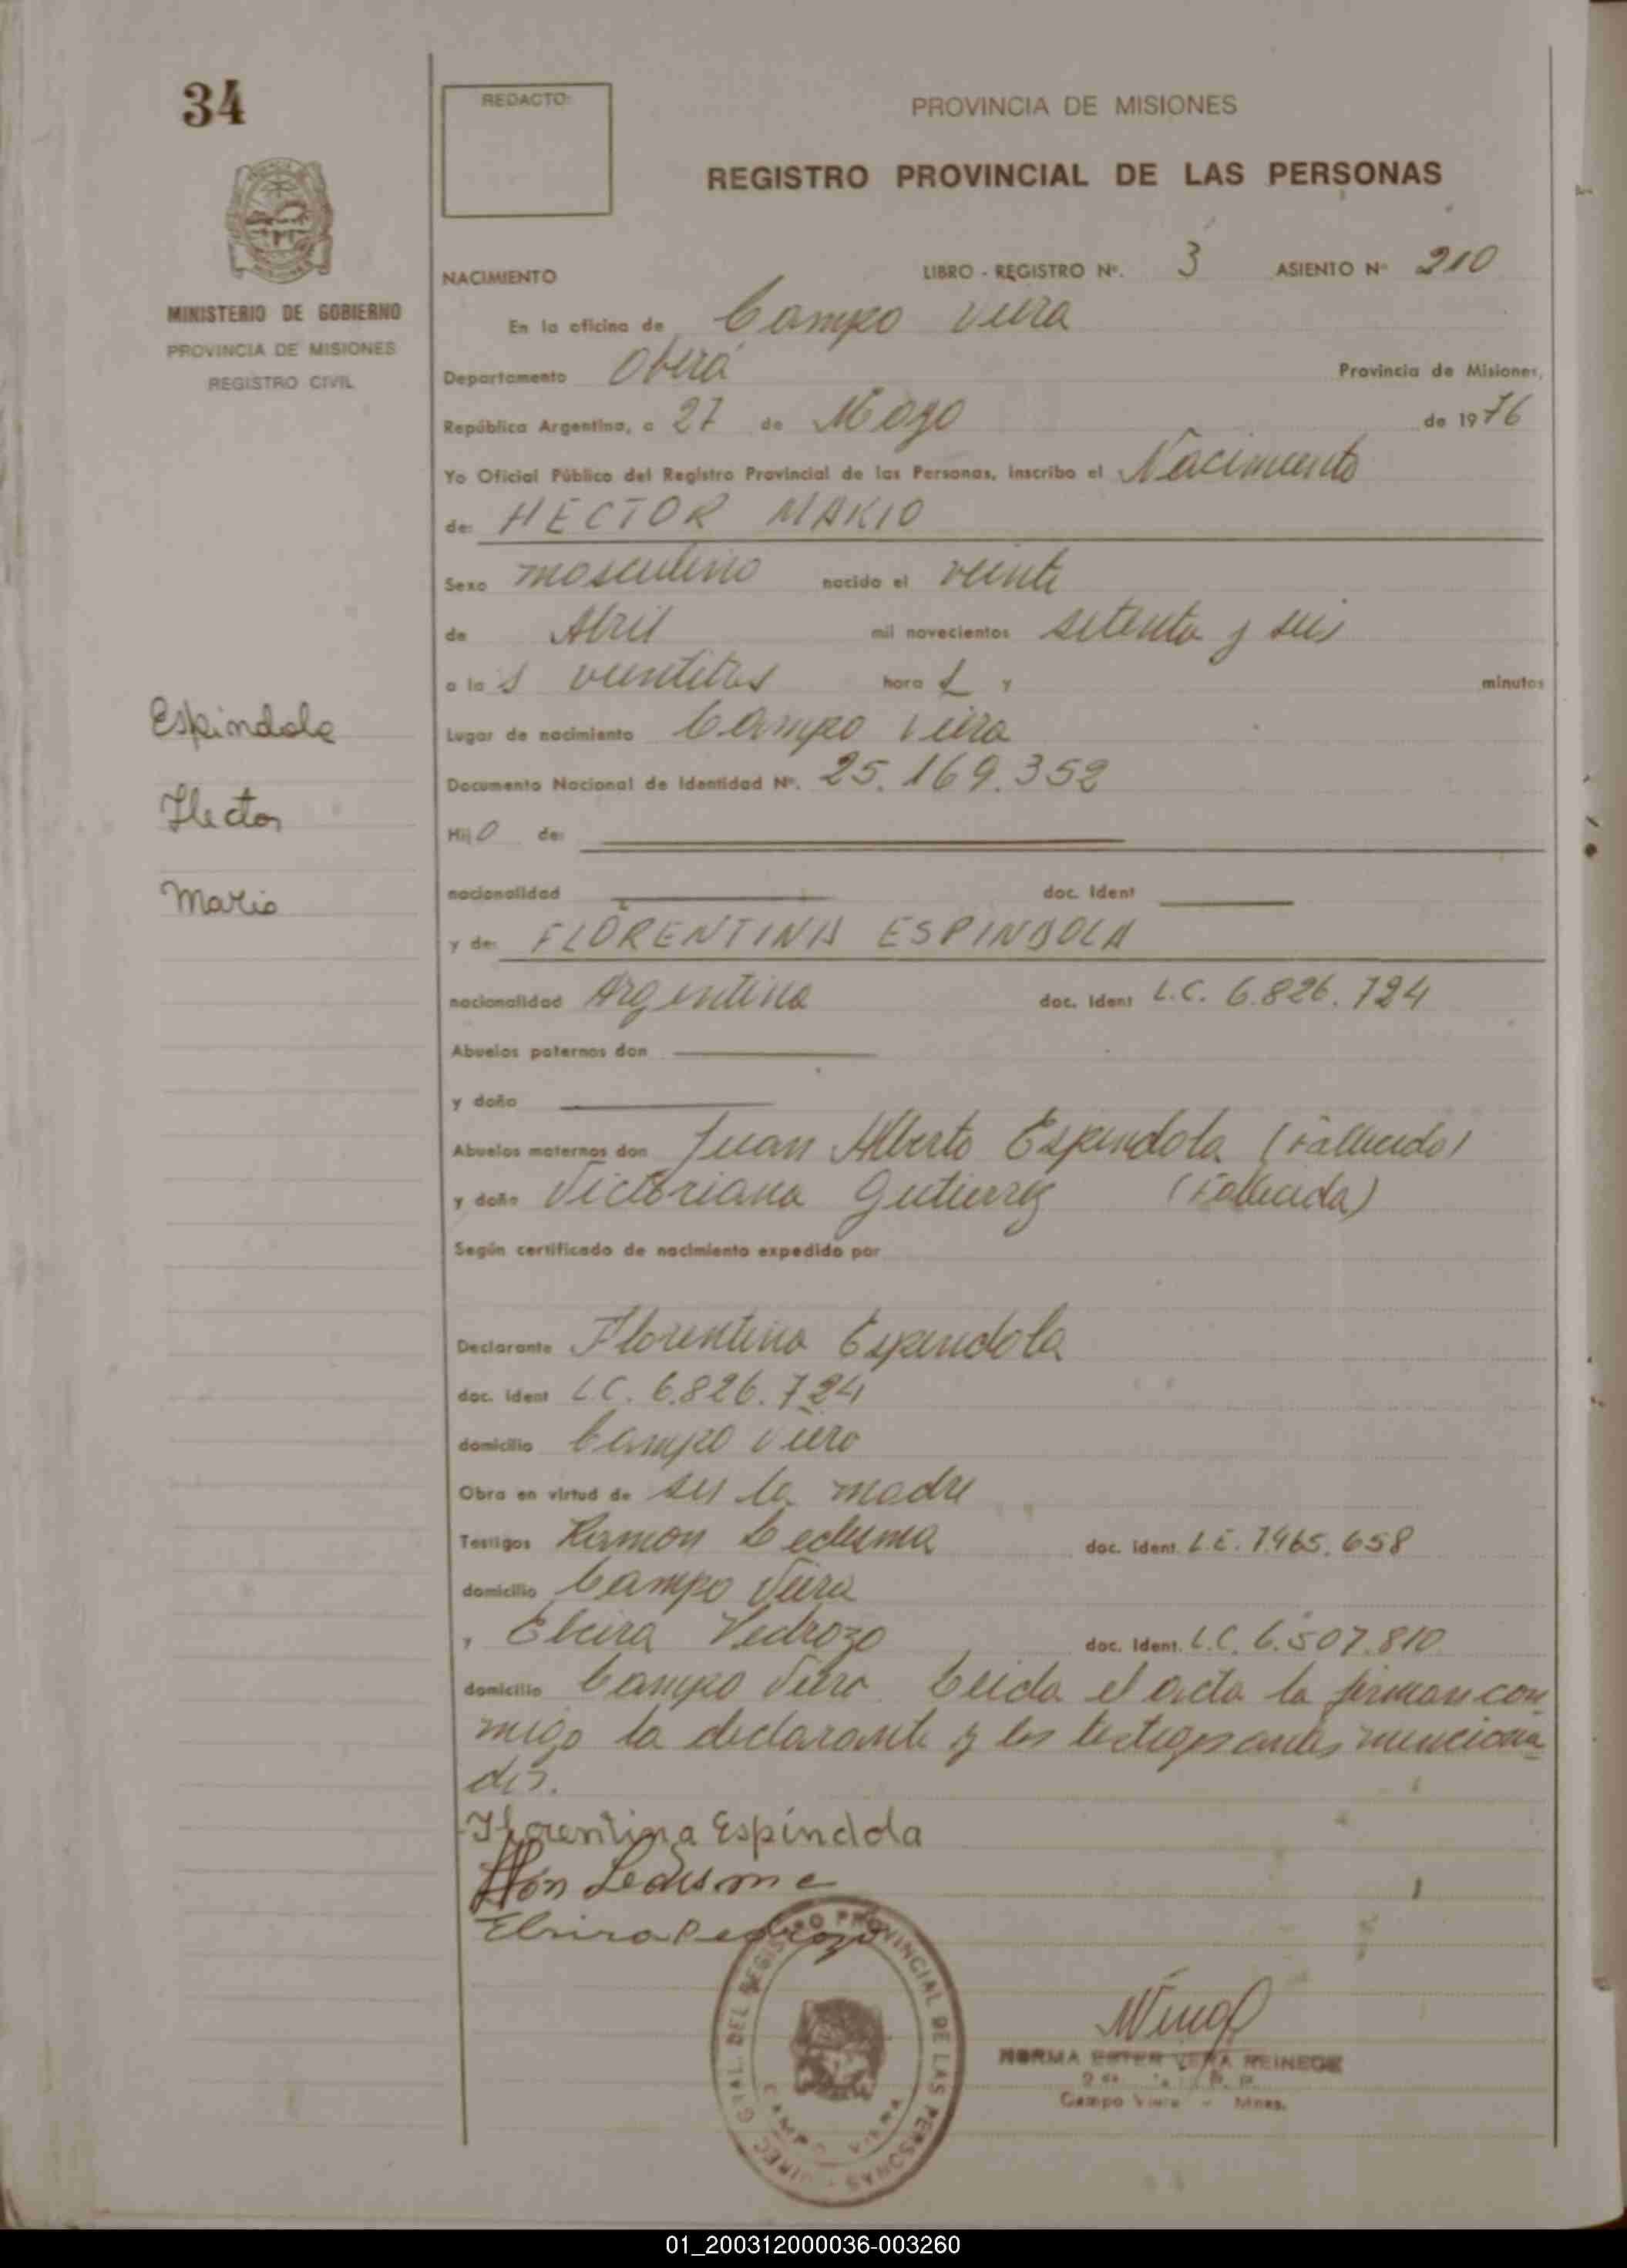 34
REDACTO:
PROVINCIA DE MISIONES
REGISTRO PROVINCIAL DE LAS PERSONAS
MINISTERIO DE GOBIERNO
PROVINCIA DE MISIONES
REGISTRO CIVIL
NACIMIENTO LIBRO - REGISTRO Nº. 3 ASIENTO Nº 210
En la oficina de Campo Viera
Departamento Oberá Provincia de Misiones,
República Argentina, a 27 de Mayo de 1976
Yo Oficial Público del Registro Provincial de las Personas, inscribo el Nacimiento
de: HECTOR MARIO
Sexo masculino nacido el veinte
de Abril mil novecientos setenta y seis
a las veintitres hora y minutos
Lugar de nacimiento Campo Viera
Documento Nacional de Identidad Nº. 25.169.352
Hijo de:
nacionalidad doc. Ident
y de: FLORENTINA ESPINDOLA
nacionalidad Argentina doc. Ident L.C. 6.826.724
Abuelos paternos don
y doña
Abuelos maternos don Juan Alberto Espindola (Fallecido)
y doña Victoriana Gutierrez (Fallecida)
Según certificado de nacimiento expedido por
Declarante Florentina Espindola
doc. Ident L.C. 6.826.724
domicilio Campo Viera
Obra en virtud de ser la madre
Testigos Ramon Ledesma doc. Ident. L.E. 7.465.658
domicilio Campo Viera
y Elvira Pedrozo doc. Ident. L.C. 6.507.810
domicilio Campo Viera Leida el acta la firman con
migo la declarante y los testigos antes menciona
dos.
Espindola
Hector
Mario
Florentina Espíndola
Rmón Ledesma
Elvira Pedrozo
DIREC. GRAL. DEL REGISTRO PROVINCIAL DE LAS PERSONAS
CAMPO VIERA
NORMA ESTER VERA REINECK
Campo Viera - Mnes.
01_200312000036-003260